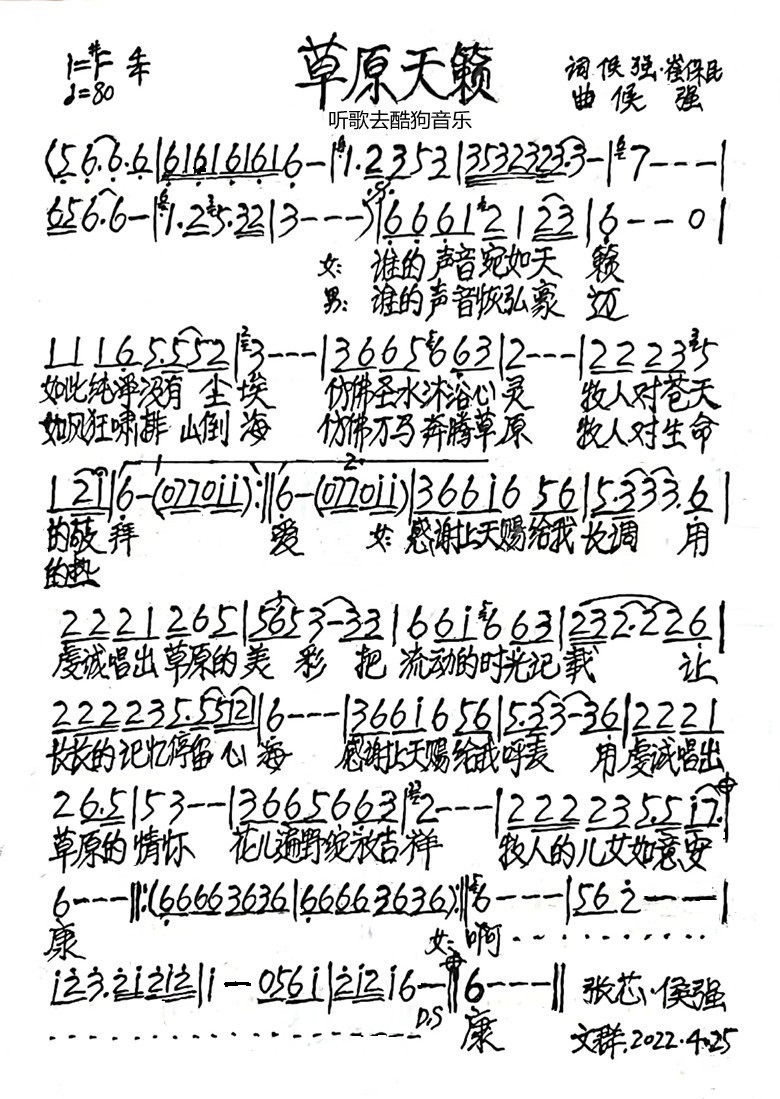 草原天籁
1=#F 4/4
♩=80
词 侯强·崔保民
曲 侯强
听歌去酷狗音乐
(5 6·6·6|61616161 6-|1·2 3 5 3|3532323·3-|7---|
6 5 6·6-|1·2 5·3 2|3---)|6 6 6 1 2 1 2 3|6--0|
女: 谁的声音宛如天 籁
男: 谁的声音恢弘豪 迈
1 1 1 6 5·5 5 2|3---|3 6 6 5 6 6 3|2---|2 2 2 3 5
如此纯净没有 尘 埃 仿佛圣水沐浴心灵 牧人对苍天
如风狂啸排 山倒 海 仿佛万马奔腾草原 牧人对生命
1 2 1|6-(0 7 7 0 i i):‖6-(0 7 7 0 i i)|3 6 6 i 6 5 6|5·3 3 3·6|
的敬拜 爱 女: 感谢上天赐给我长调 用
的热
2 2 2 1 2 6 5|5 6 5 3-3 3|6 6 i 6 6 3|2 3 2·2 2 6|
虔诚唱出草原的美 彩 把 流动的时光记 载 让
2 2 2 2 3 5·5 5 i 2|6---|3 6 6 i 6 5 6|5·3 3-3 6|2 2 2 1
长长的记忆停留心 海 感谢上天赐给我呼麦 用虔诚唱出
2 6·5|5 3--|3 6 6 5 6 6 3|2---|2 2 2 2 3 5·5 i 7·|
草原的情怀 花儿遍野绽放吉祥 牧人的儿女如意安
6---‖:(6 6 6 6 3 6 3 6|6 6 6 6 3 6 3 6):‖6---|5 6 2--|
康 女: 啊
i 2 3·2 i 2 i 2|i-0 5 6 i|2 i 2 i 6-‖6---‖ 张芯·侯强
D.S 康 文群.2022.4.25